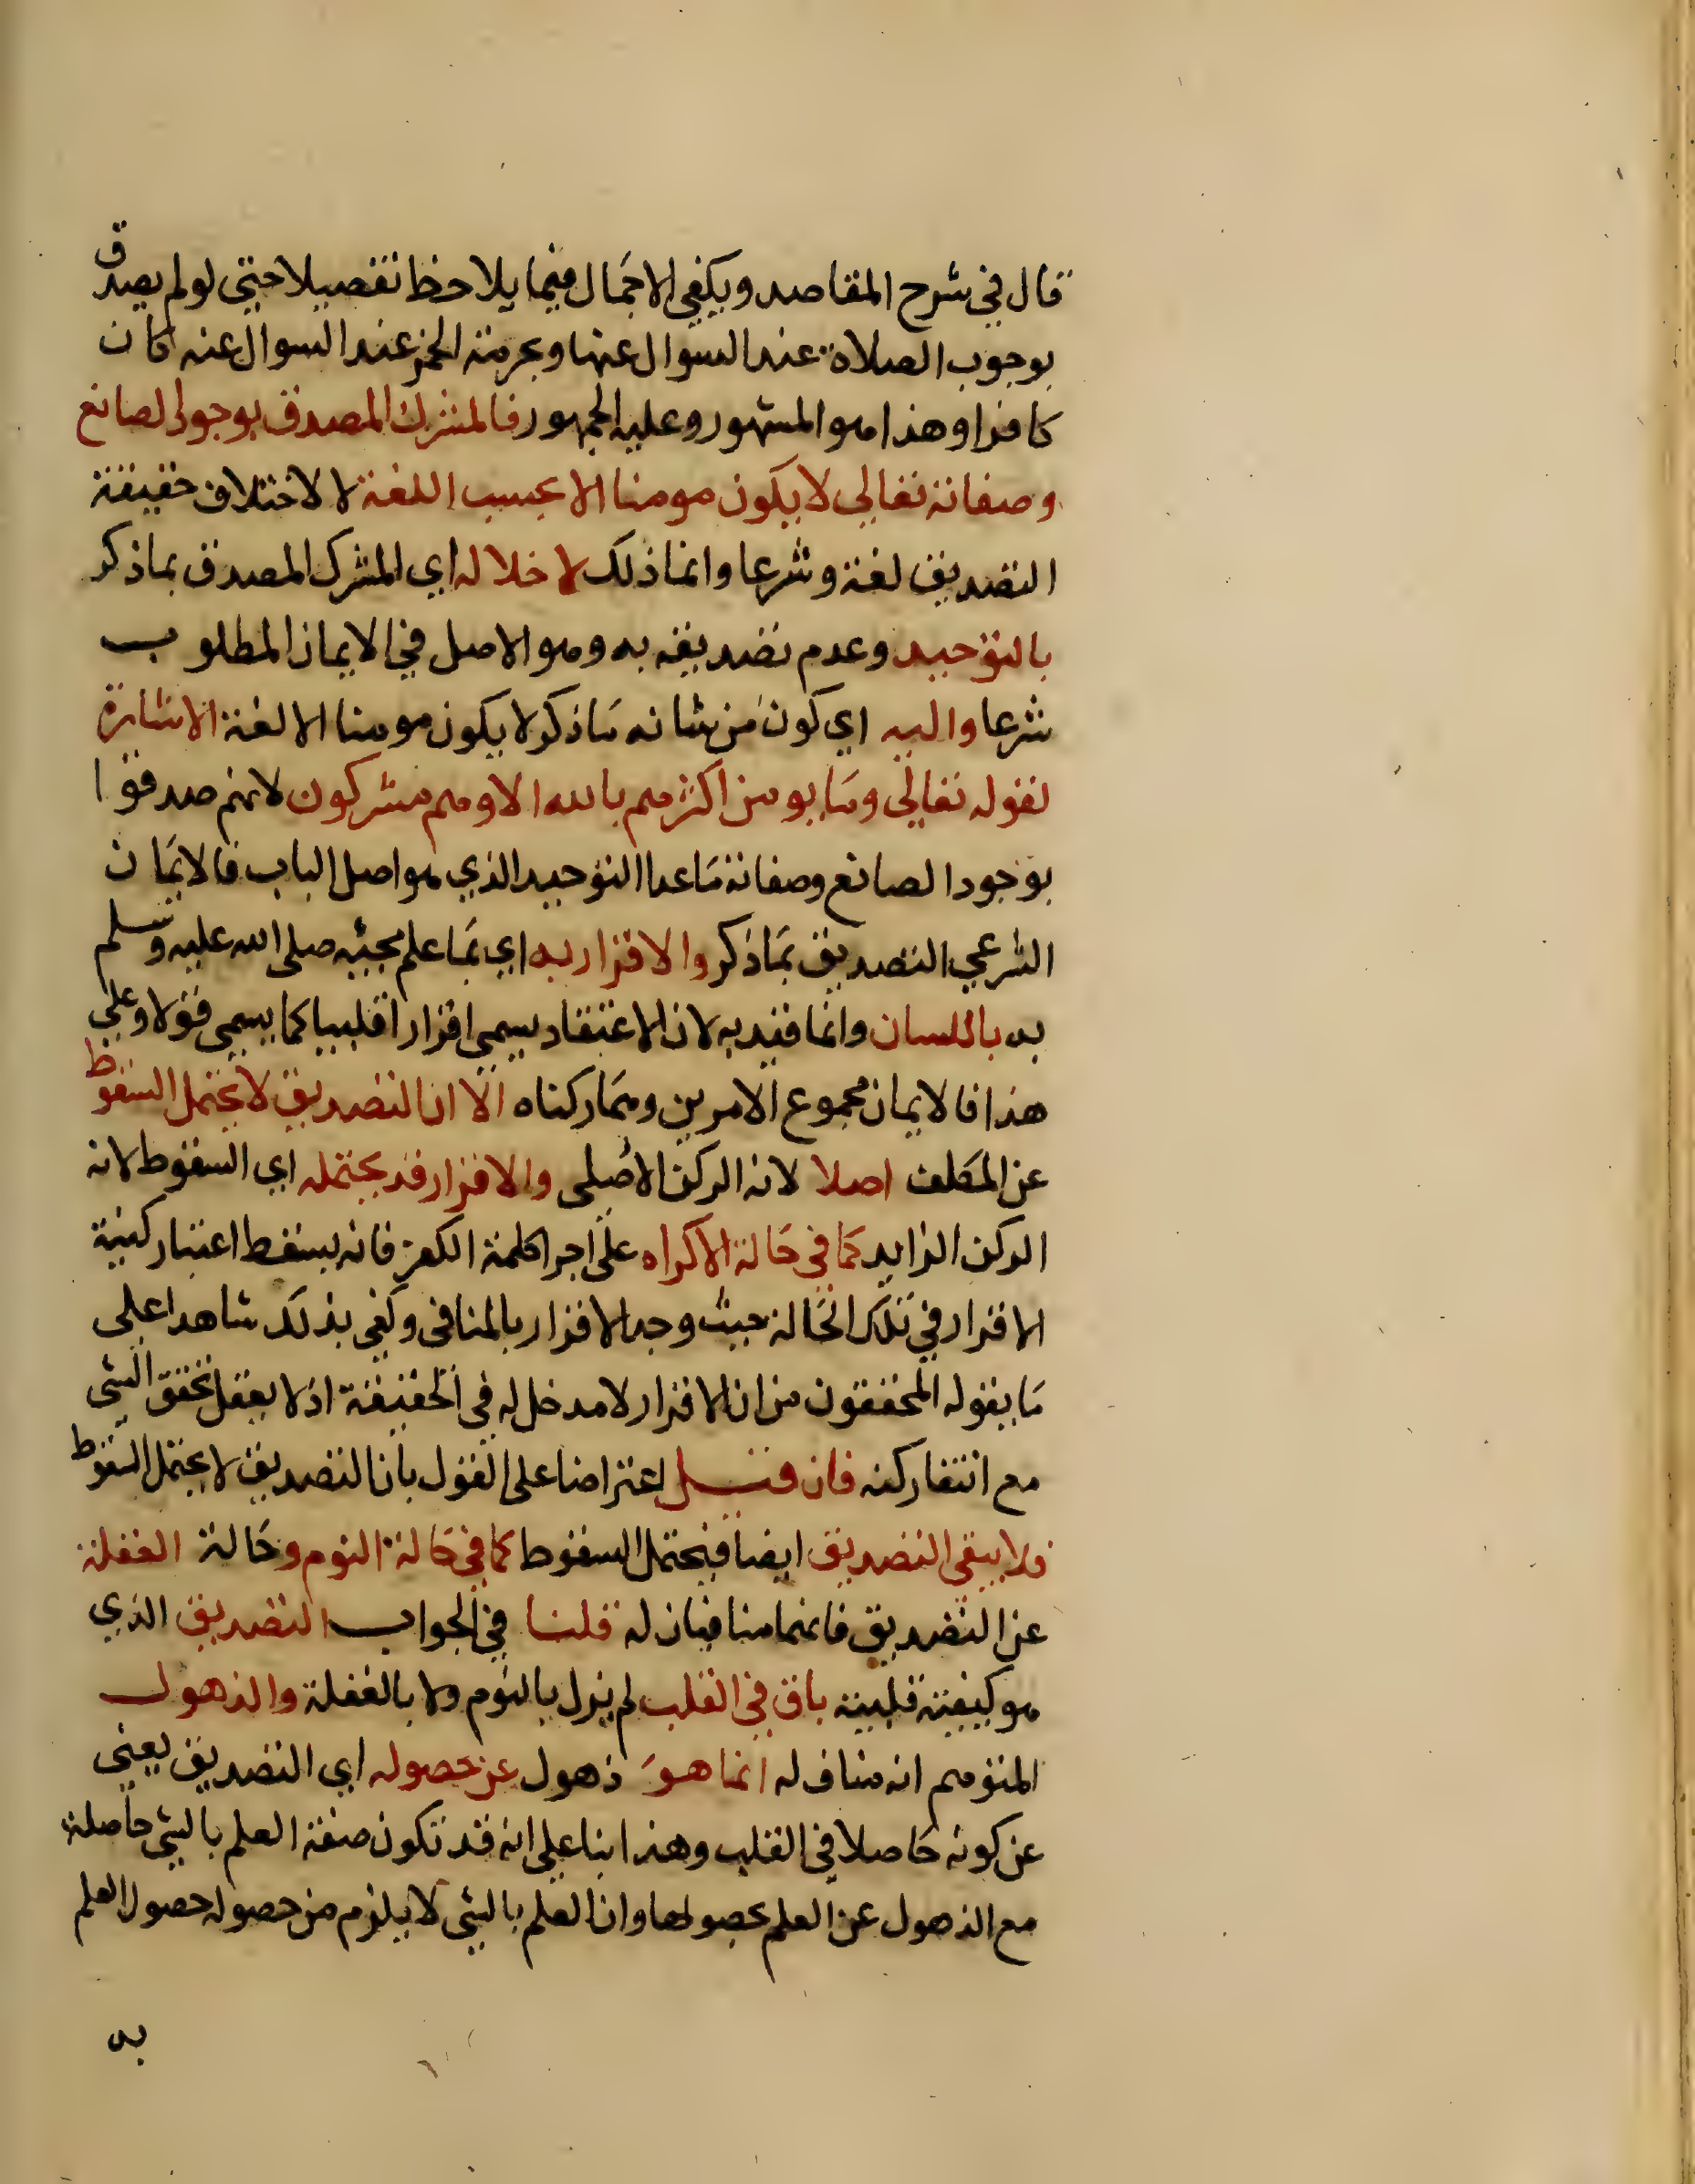 قال في شرح المقاصد ويكفي الاجمال فيما يلاحظ تفصيلا حتي لو لم يصدق
بوجوب الصلاة عند السوال عنها وبحرمة الخمر عند السوال عنه كان
كافرا وهذا هو المشهور وعليه الجمهور فالمشرك المصدق بوجود الصانع
وصفاته تعالي لا يكون مومنا الا بحسب اللغة لا لاختلاف حقيقة
التصديق لغة وشرعا وانما ذلك لاخلاله اي المشرك المصدق بما ذكر
بالتوحيد وعدم تصديقه به وهو الاصل في الايمان المطلوب
شرعا واليه اي كون من شانه ما ذكر لا يكون مومنا الا لغة الاشارة
لقوله تعالي وما يومن اكثرهم بالله الا وهم مشركون لانهم صدقوا
بوجود الصانع وصفاته ما عدا التوحيد الذي هو اصل الباب فالايمان
الشرعي التصديق بما ذكر والاقرار به اي بما علم مجيئه صلى الله عليه وسلم
به باللسان وانما قيد به لان الاعتقاد يسمي اقرارا قلبيا كما يسمي قولا وعلي
هذا فالايمان مجموع الامرين وهما ركناه الا ان التصديق لا يحتمل السقوط
عن المكلف اصلا لانه الركن الاصلي والاقرار قد يحتمله اي السقوط لانه
الركن الزايد كما في حالة الاكراه على اجرا كلمة الكفر فانه يسقط اعتبار ركنية
الاقرار في تلك الحالة حيث وجد الاقرار بالمنافي وكفي بذلك شاهدا علي
ما يقوله المحققون من ان الاقرار لا مدخل له في الحقيقة اذ لا يعقل تحقق الشي
مع انتفا ركنه فان قيل اعتراضا على القول بان التصديق لا يحتمل السقوط
ولا يبقي التصديق ايضا فيحتمل السقوط كما في حالة النوم وحالة الغفلة
عن التصديق فانهما منافيان له قلنا في الجواب التصديق الذي
هو كيفية قلبية باق في القلب لم يزل بالنوم ولا بالغفلة والذهول
المتوهم انه مناف له انما هو ذهول عن حصوله اي التصديق يعني
عن كونه حاصلا في القلب وهذا بنا علي انه قد تكون صفة العلم بالشي حاصلة
مع الذهول عن العلم بحصولها وان العلم بالشي لا يلزم من حصوله حصول العلم
به